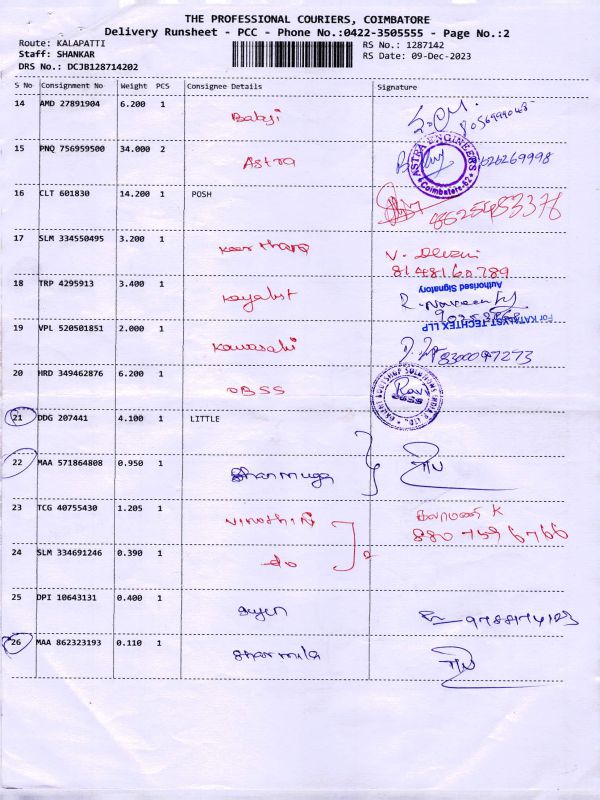 THE PROFESSIONAL COURIERS, COIMBATORE
Delivery Runsheet - PCC - Phone No.:0422-3505555 - Page No.:2
Route: KALAPATTI
Staff: SHANKAR
DRS No.: DCJB128714202
RS No.: 1287142
RS Date: 09-Dec-2023
S No Consignment No Weight PCS Consignee Details Signature
14 AMD 27891904 6.200 1 Balaji 8056999048
15 PNQ 756959500 34.000 2 Astra
ASTRA ENGINEERS Coimbatore-62
16 CLT 601830 14.200 1 POSH
17 SLM 334550495 3.200 1 V. Devi
8148160789
18 TRP 4295913 3.400 1
Authorised Signatory
For KATALYST TECHTEX LLP
19 VPL 520501851 2.000 1 Kawasaki 8300097273
20 HRD 349462876 6.200 1 OBSS
Ravi
21 DDG 207441 4.100 1 LITTLE
22 MAA 571864808 0.950 1 Shanmuga
23 TCG 40755430 1.205 1 K
880 759 6766
24 SLM 334691246 0.390 1 do 2
25 DPI 10643131 0.400 1
26 MAA 862323193 0.110 1 Sharmila